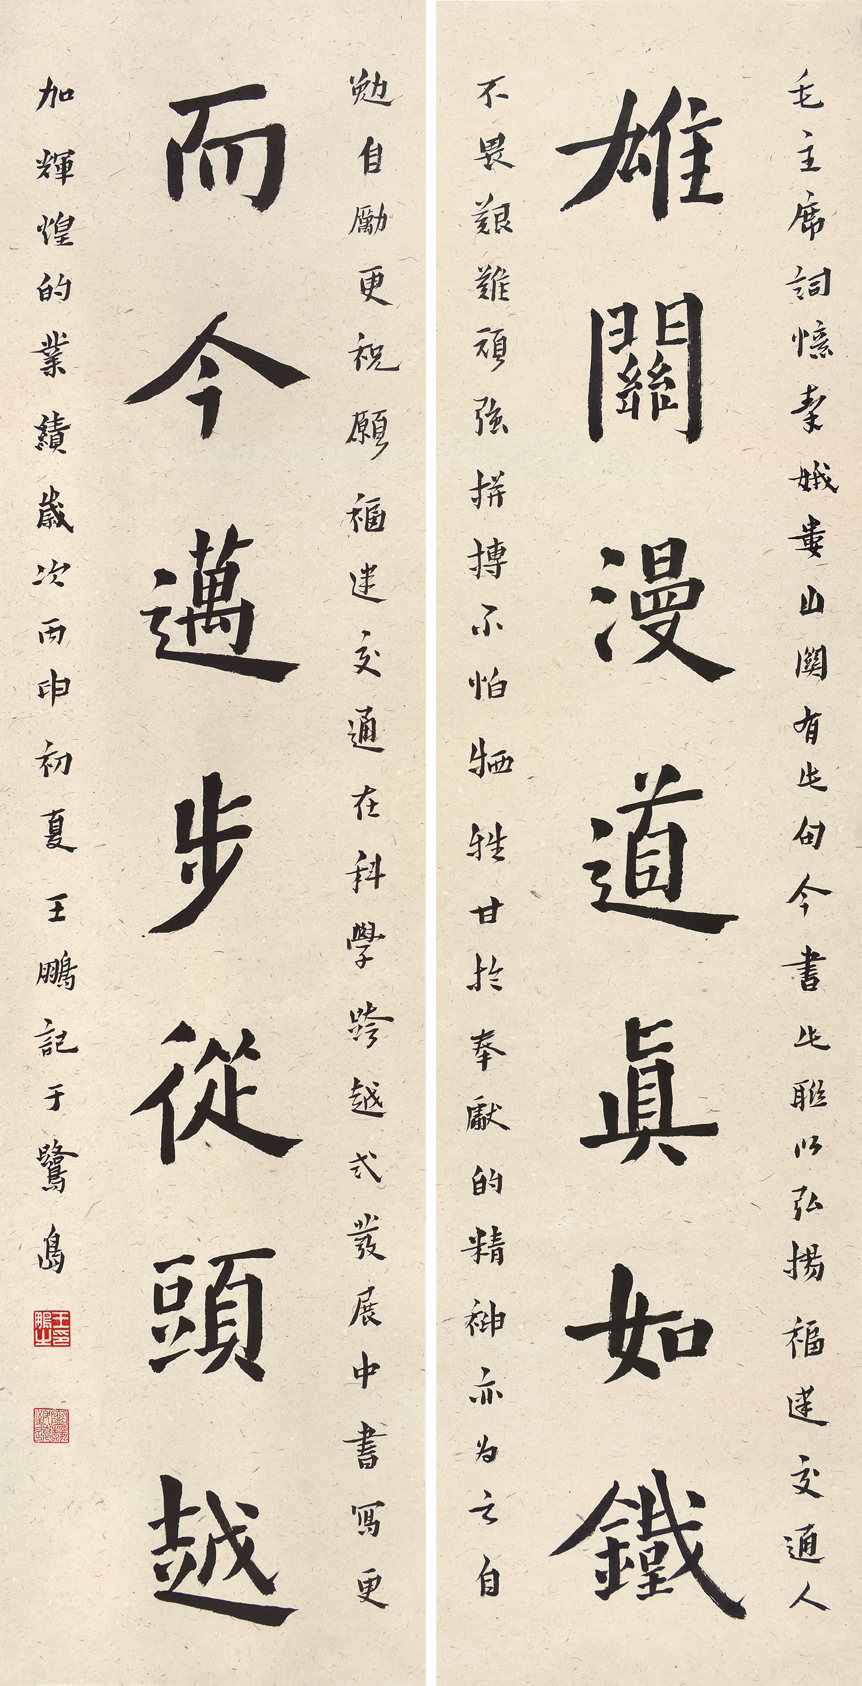 毛主席詞憶秦娥婁山關有此句今書此聯以弘揚福建交通人
雄關漫道眞如鐵
不畏艱難頑强拼搏不怕牺牲甘於奉獻的精神亦为之自
勉自勵更祝願福建交通在科學跨越式發展中書寫更
而今邁步從頭越
加輝煌的業績歲次丙申初夏王鵬記于鷺島
王鵬之印